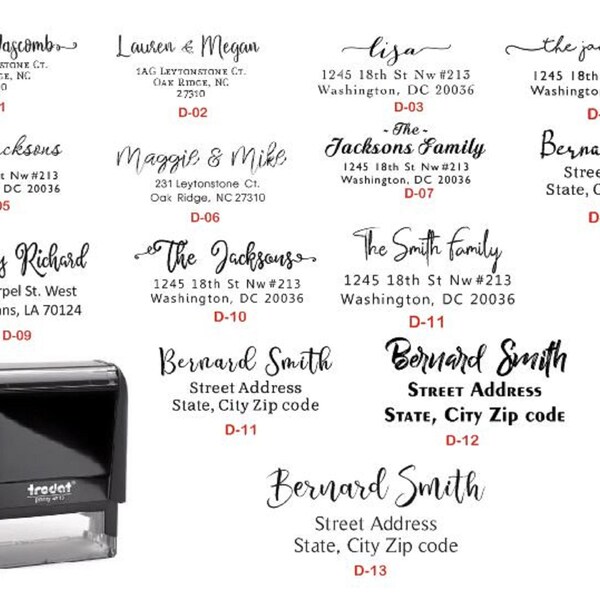 Lauren & Megan
1AG Leytonstone Ct.
Oak Ridge, NC
27310
D-02
lisa
1245 18th St Nw #213
Washington, DC 20036
D-03
1245 18th
Washington
NC
Maggie & Mike
231 Leytonstone Ct.
Oak Ridge, NC 27310
D-06
- The -
Jacksons Family
1245 18th St Nw #213
Washington, DC 20036
D-07
St Nw #213
DC 20036
Richard
St. West
LA 70124
D-09
The Jacksons
1245 18th St Nw #213
Washington, DC 20036
D-10
The Smith Family
1245 18th St Nw #213
Washington, DC 20036
D-11
Bernard Smith
Street Address
State, City Zip code
D-11
Bernard Smith
Street Address
State, City Zip code
D-12
trodat
Bernard Smith
Street Address
State, City Zip code
D-13